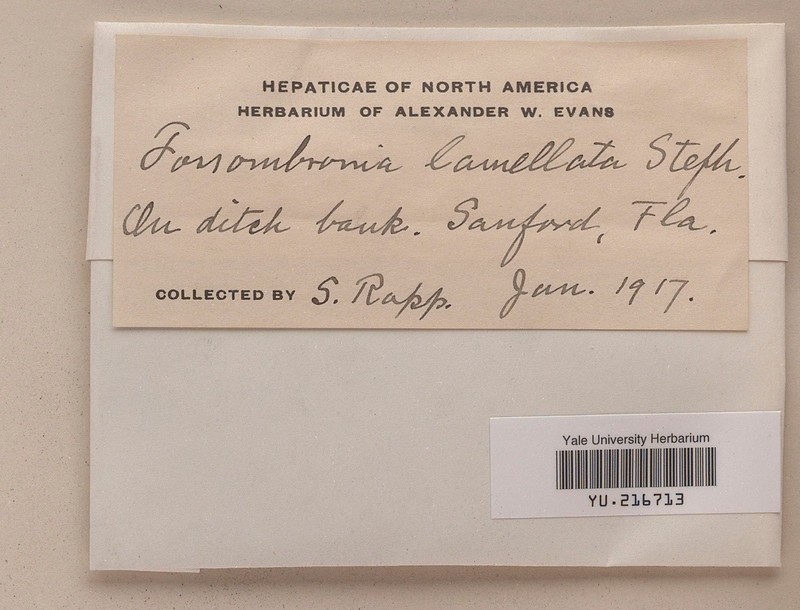 HEPATICAE OF NORTH AMERICA
HERBARIUM OF ALEXANDER W. EVANS
Fossombronia lamellata Steph.
On ditch bank. Sanford, Fla.
COLLECTED BY S. Rapp. Jan. 1917.
Yale University Herbarium
YU.216713